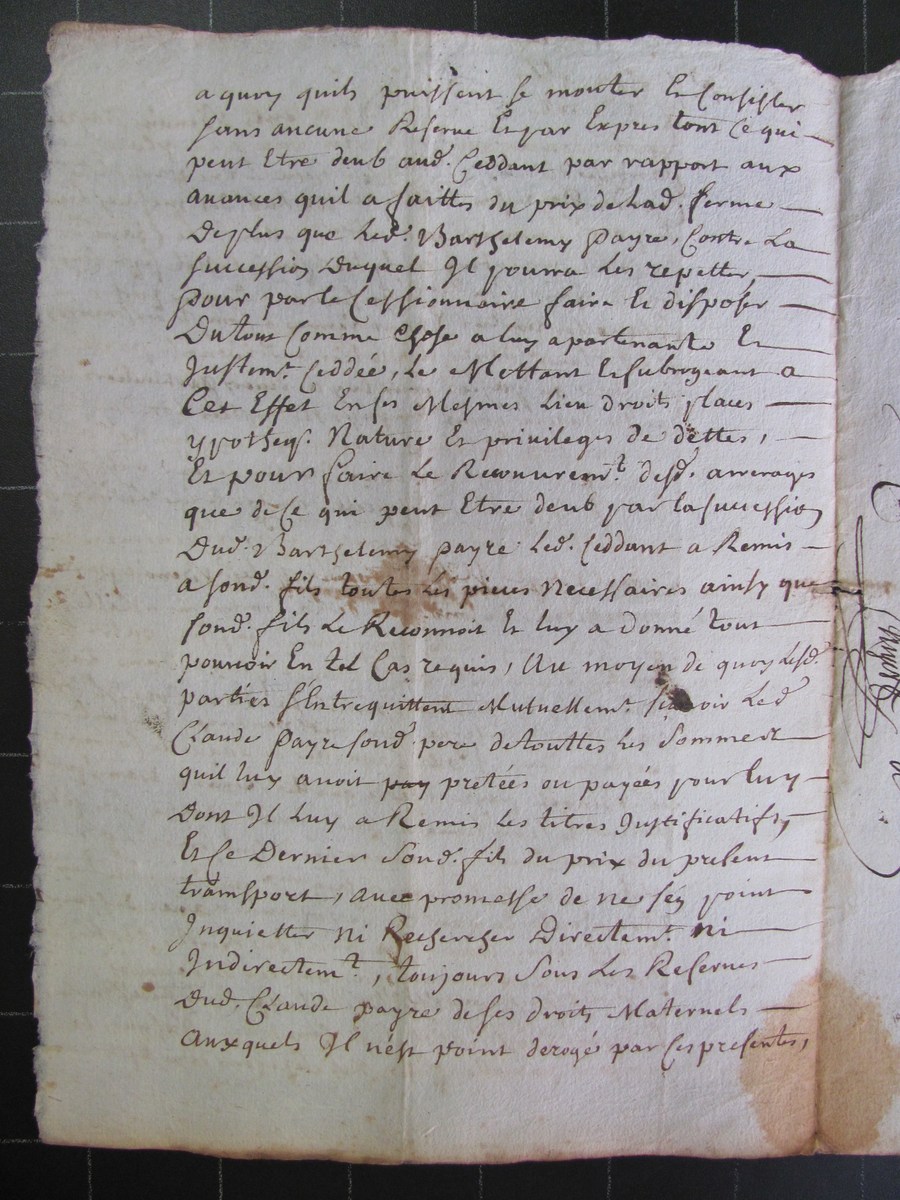 a quoy quils puissent se monter Et Consister
sans aucune Reserve Et par Expres tout Ce qui
peut Etre deub aud. Ceddant par rapport aux
avances quil a faittes du prix de Lad. ferme
De plus que Led. Barthelemy Payre, Contre La
succession Duquel Il pourra Les repetter,
pour par le Cessionnaire faire Et disposer
Du tout Comme Chose a luy apartenante Et
Justemt. Ceddée, Le Mettant Et subrogeant a
Cet Effet En ses Mesmes Lieu droits places
ypotheqs. Nature Et privileges de dettes,
Et pour faire Le Recouvremt. desd. arrerages
que de Ce qui peut Etre deub par la succession
Dud. Barthelemy payre Led. Ceddant a Remis
a sond. fils toutes Les pieces Necessaires ainsy que
sond. fils Le Reconnoit Et luy a donné tout
pouvoir En tel Cas requis, Au moyen de quoy Lesd.
parties s'Entrequittent Mutuellemt. scavoir Led
Claude Payre sond. pere de touttes Les Sommes
quil luy avoit pay pretées ou payées pour luy
Dont Il Luy a Remis Les titres Justificatifs,
Et Ce Dernier Sond. fils du prix du present
transport, avec promesse de ne s'en point
Inquietter Ni Rechercher Directemt. Ni
Indirectemt., toujours Sous Les Reserves
Dud. Claude payre de ses droits Maternels
Auxquels Il n'est point derogé par Ces presentes,